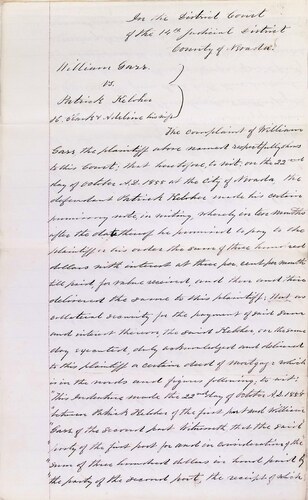 In the District Court
of the 14th Judicial District
County of Nevada.
William Garr
vs.
Patrick Kelcher
The complaint of William
Garr the plaintiff above named respectfully shows
to this Court; that heretofore, to wit, on the 22nd
day of October A.D. 1855 at the City of Nevada. the
defendant Patrick Kelcher made his certain
promissory note, in writing, whereby in two months
after the date thereof he promised to pay to the
plaintiff or his order the sum of three hundred
dollars with interest at three per cent. per month
till paid for value received, and then and there
delivered the same to this plaintiff; that as
collateral security for the payment of said sum
and interest thereon the said Kelcher, on the same
day executed, duly acknowledged and delivered
to this plaintiff a certain deed of mortgage which
is in the words and figures following, to wit:
"This Indenture made the 22nd day of October A.D. 1855
between Patrick Kelcher of the first part and William
Garr of the second part Witnesseth, that the said
party of the first part for and in consideration of the
sum of three hundred dollars in hand paid by
the party of the second part, the receipt of which